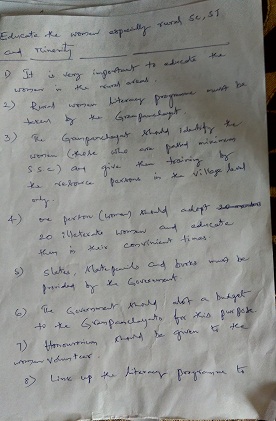 Educate the women especially rural SC, ST
and Minority
1) It is very important to educate the
women in the rural areas.
2) Rural women literacy programme must be
taken by the Grampanchayat.
3) The Grampanchayat should identify the
women (those who are passed minimum
S.S.C) and give them training by
the resource persons in the village level
only.
4) one person (women) should adopt
20 illeterate women and educate
them in their convinient times.
5) Slates, and books must be
provided by the Government
6) The Government should alot a budget
to the Grampanchayats for this purpose
7) Honourarium should be given to the
women volunteer.
8) Link up the literacy programme to